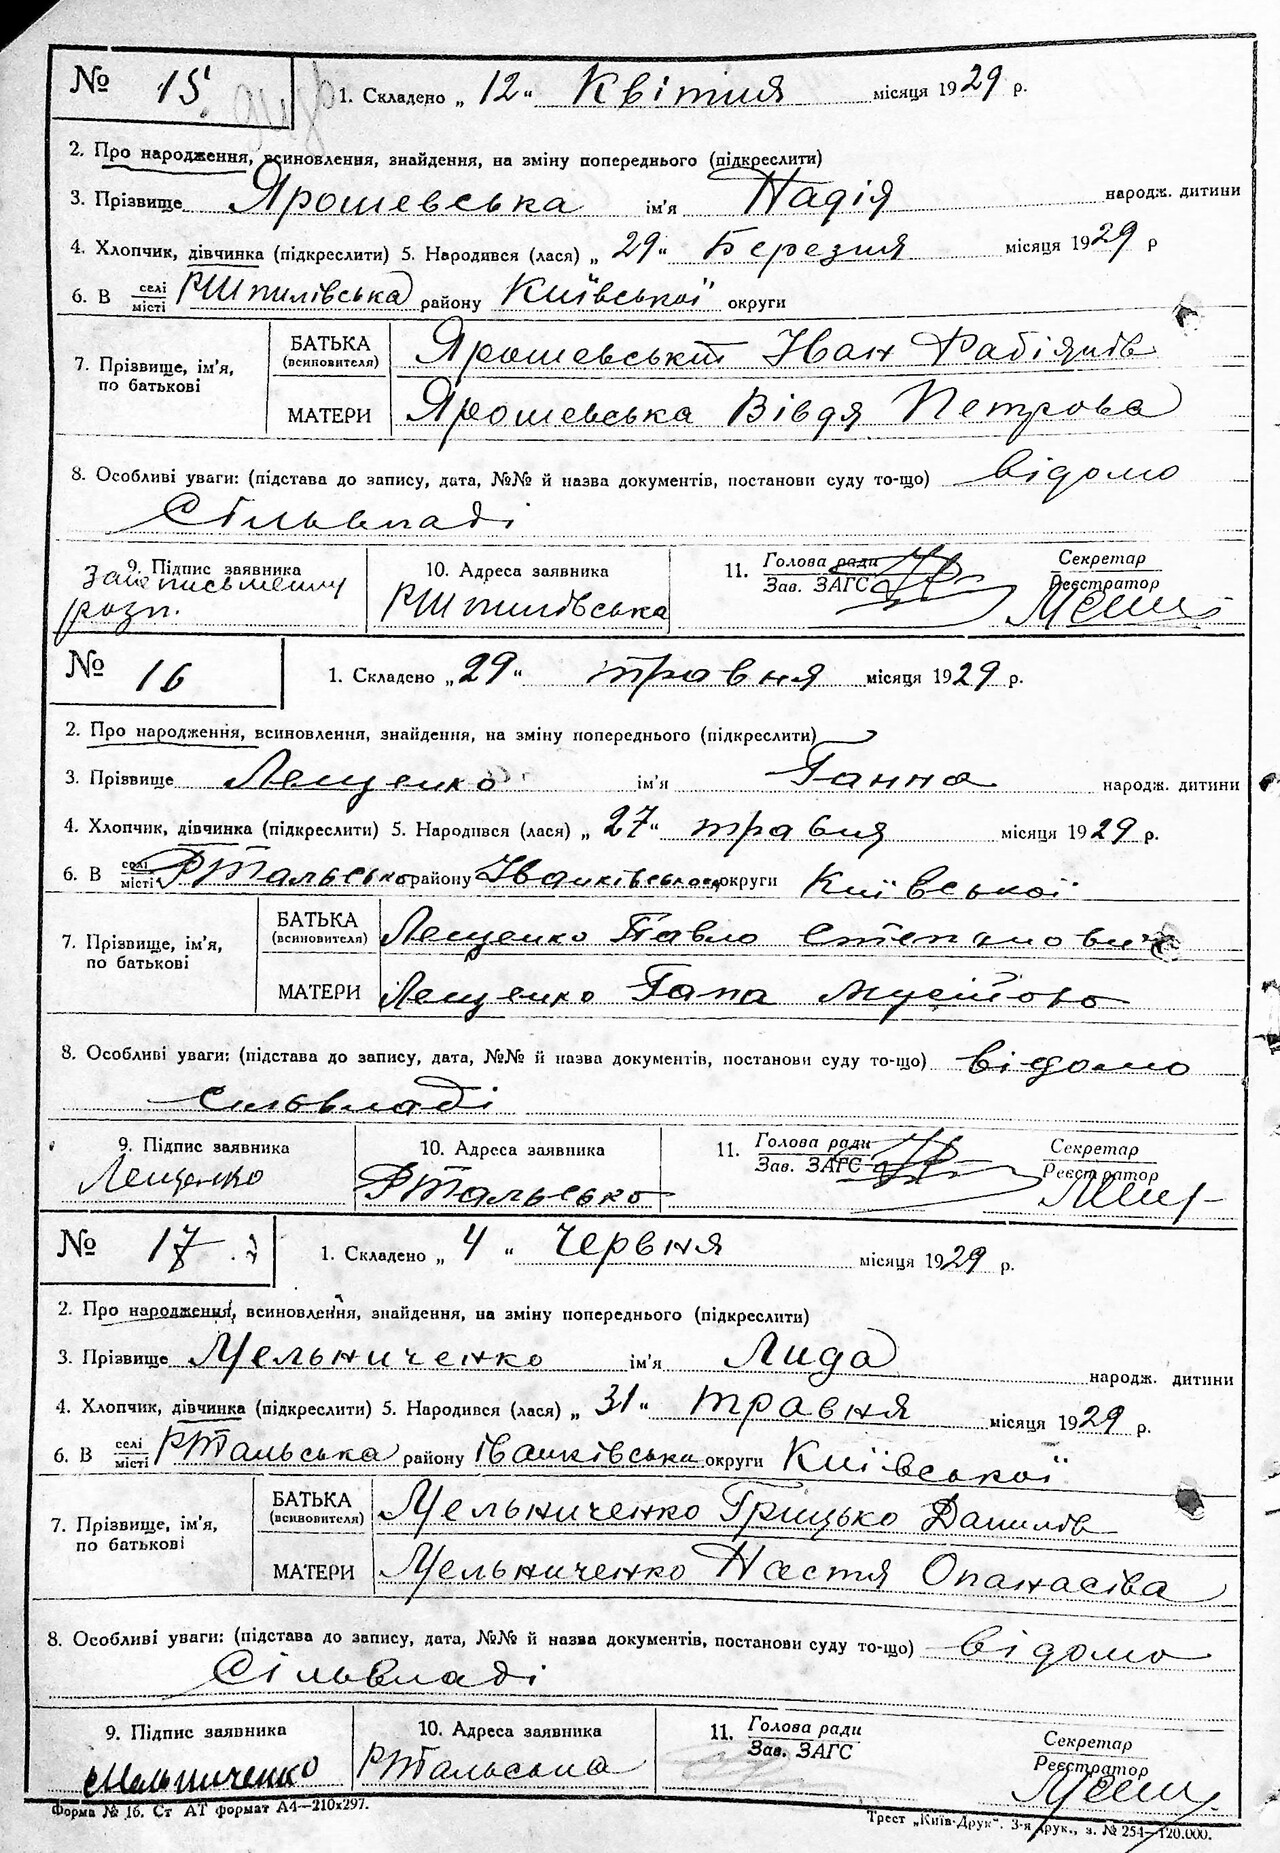 № 15
1. Складено „ 12 “ Квітня місяця 1929 р.
2. Про народження, всиновлення, знайдення, на зміну попереднього (підкреслити)
3. Прізвище Ярошевська ім'я Надія народж. дитини
4. Хлопчик, дівчинка (підкреслити) 5. Народився (лася) „ 29 “ Березня місяця 1929 р
6. В селі/місті РШпилівська району Київської округи
7. Прізвище, ім'я, по батькові
БАТЬКА (всиновителя) Ярошевський Іван Фабіянів
МАТЕРИ Ярошевська Вівдя Петрова
8. Особливі уваги: (підстава до запису, дата, №№ й назва документів, постанови суду то-що) відомо
Сільвладі
9. Підпис заявника
розп.
10. Адреса заявника
РШпилівська
11. Голова ради
Зав. ЗАГС
Секретар
Реєстратор
№ 16
1. Складено „ 29 “ травня місяця 1929 р.
2. Про народження, всиновлення, знайдення, на зміну попереднього (підкреслити)
3. Прізвище Лещенко ім'я Ганна народж. дитини
4. Хлопчик, дівчинка (підкреслити) 5. Народився (лася) „ 27 “ травня місяця 1929 р.
6. В селі/місті РТальсько району Іванківського округи Київської
7. Прізвище, ім'я, по батькові
БАТЬКА (всиновителя) Лещенко Павло Степанович
МАТЕРИ Лещенко Гапа Мусійово
8. Особливі уваги: (підстава до запису, дата, №№ й назва документів, постанови суду то-що) відомо
сільвладі
9. Підпис заявника
Лещенко
10. Адреса заявника
РТальсько
11. Голова ради
Зав. ЗАГС
Секретар
Реєстратор
№ 17
1. Складено „ 4 “ Червня місяця 1929 р.
2. Про народження, всиновлення, знайдення, на зміну попереднього (підкреслити)
3. Прізвище Мельниченко ім'я Лида народж. дитини
4. Хлопчик, дівчинка (підкреслити) 5. Народився (лася) „ 31 “ травня місяця 1929 р.
6. В селі/місті РТальська району Іванківська округи Київської
7. Прізвище, ім'я, по батькові
БАТЬКА (всиновителя) Мельниченко Грицько Данилів
МАТЕРИ Мельниченко Настя Опанасіва
8. Особливі уваги: (підстава до запису, дата, №№ й назва документів, постанови суду то-що) відомо
Сільвладі
9. Підпис заявника
Мельниченко
10. Адреса заявника
РТальська
11. Голова ради
Зав. ЗАГС
Секретар
Реєстратор
Форма № 16. Ст АТ формат А4—210х297.
Трест „Київ-Друк“. 3-я друк., з. № 254—120.000.